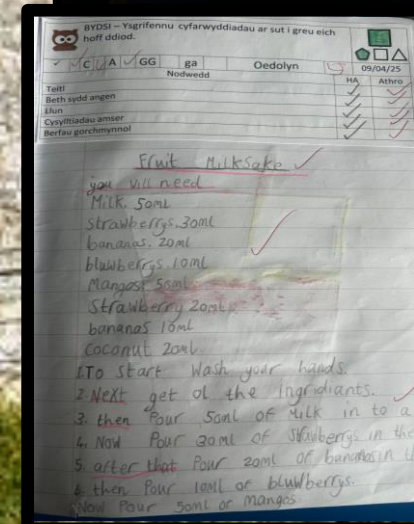 BYDSI – Ysgrifennu cyfarwyddiadau ar sut i greu eich
hoff ddiod.
✓ C A ✓ GG ga Oedolyn 09/04/25
Nodwedd HA Athro
Teitl
Beth sydd angen
Llun
Cysylltiadau amser
Berfau gorchmynnol
Fruit Milksake
you will need
Milk. 50ml
strawberrys. 30ml
bananas. 20ml
bluwberrys. 10ml
Mangos. 50ml
Strawberry 20ml
bananas 10ml
coconut 20ml
1. To start wash your hands.
2. Next get ol the ingridiants.
3. then Pour 50ml of Milk in to a
4. Now Pour 30ml of strawberrys in the
5. after that Pour 20ml of bananas in
6. then Pour 10ml of bluwberrys.
Now Pour 50ml of mangos.